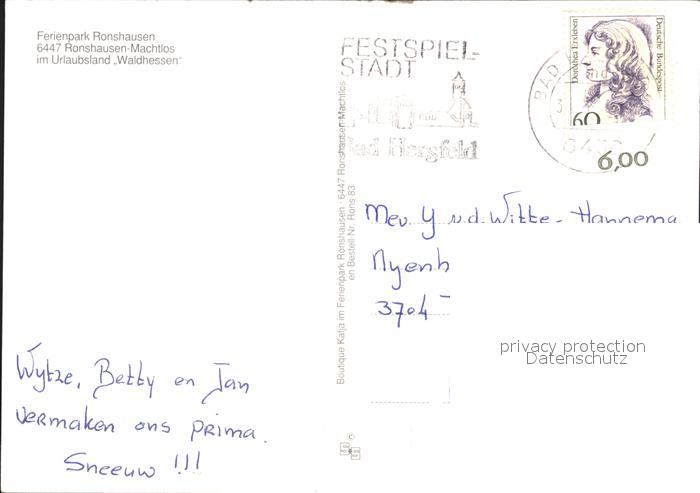 Ferienpark Ronshausen
6447 Ronshausen-Machtlos
im Urlaubsland „Waldhessen"
FESTSPIEL-
STADT
Bad Hersfeld
Dorothea Erxleben
Deutsche Bundespost
60
BAD
6,00
Boutique Katja im Ferienpark Ronshausen · 6447 Ronshausen-Machtlos
en Bestell-Nr. Rons 83
Mev. Y v.d. Witte - Hannema
Nyenh
3704
privacy protection
Datenschutz
Wytze, Betty en Jan
vermaken ons prima.
Sneeuw !!!